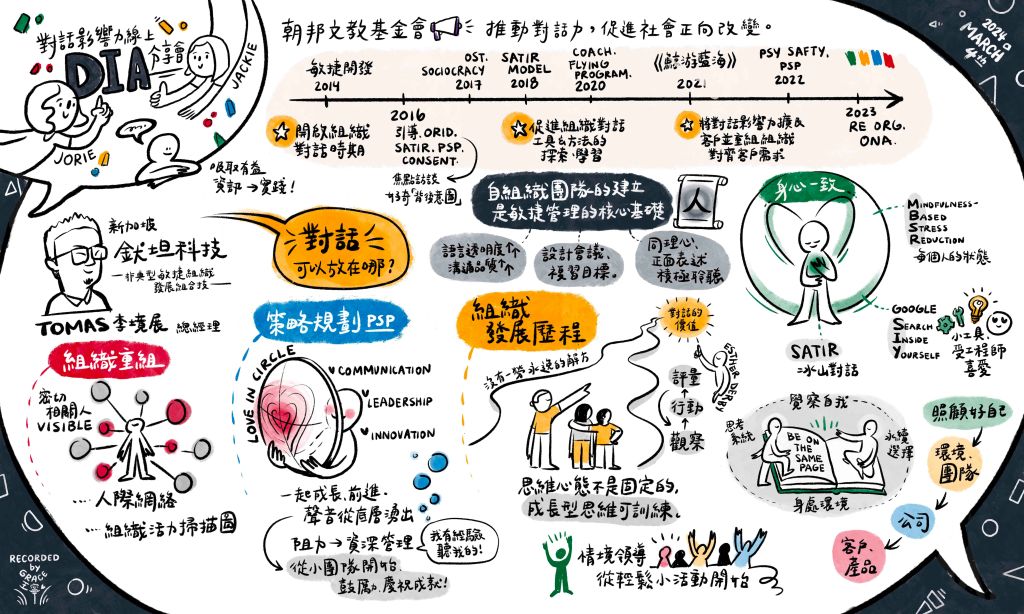 對話影響力線上
分享會
DIA
JACKIE
JORIE
朝邦文教基金會
推動對話力,促進社會正向改變。
2024
MARCH
4th
敏捷開發
2014
2016
引導.ORID.
SATIR.PSP.
CONSENT.
OST.
SOCIOCRACY
2017
SATIR
MODEL
2018
COACH.
FLYING
PROGRAM.
2020
《鯨游藍海》
2021
PSY SAFTY,
PSP
2022
2023
RE ORG.
ONA.
開啟組織
對話時期
促進組織對話
工具&方法的
探索.學習
將對話影響力擴及
客戶並重組組織
對齊客戶需求
吸取有益
資訊→實踐!
焦點訪談
好奇「背後意圖」
新加坡
鈦坦科技
—非典型敏捷組織
發展組合技—
TOMAS 李境展 總經理
對話
可以放在哪?
自組織團隊的建立
是敏捷管理的核心基礎
人
語言透明度↑
溝通品質↑
設計會議、
複習目標。
同理心、
正面表述
積極聆聽
身心一致
MINDFULNESS-
BASED
STRESS
REDUCTION
每個人的狀態
GOOGLE
SEARCH
INSIDE
YOURSELF
小工具,
受工程師
喜愛
SATIR
冰山對話
組織重組
密切
相關人
VISIBLE
....人際網絡
....組織活力掃描圖
策略規劃 PSP
LOVE IN CIRCLE
COMMUNICATION
LEADERSHIP
INNOVATION
一起成長、前進.
聲音從底層湧出
阻力→資深管理
我有經驗
聽我的!
從小團隊開始、
鼓勵、慶祝成就!
組織
發展歷程
沒有一勞永逸的解方
對話的
價值
ESTHER DERBY
評量
行動
觀察
思維心態不是固定的,
成長型思維可訓練。
情境領導
從輕鬆小活動開始
覺察自我
思考
系統
BE ON
THE
SAME
PAGE
永續
選擇
身處環境
照顧好自己
環境、
團隊
公司
客戶、
產品
RECORDED
by
GRACE